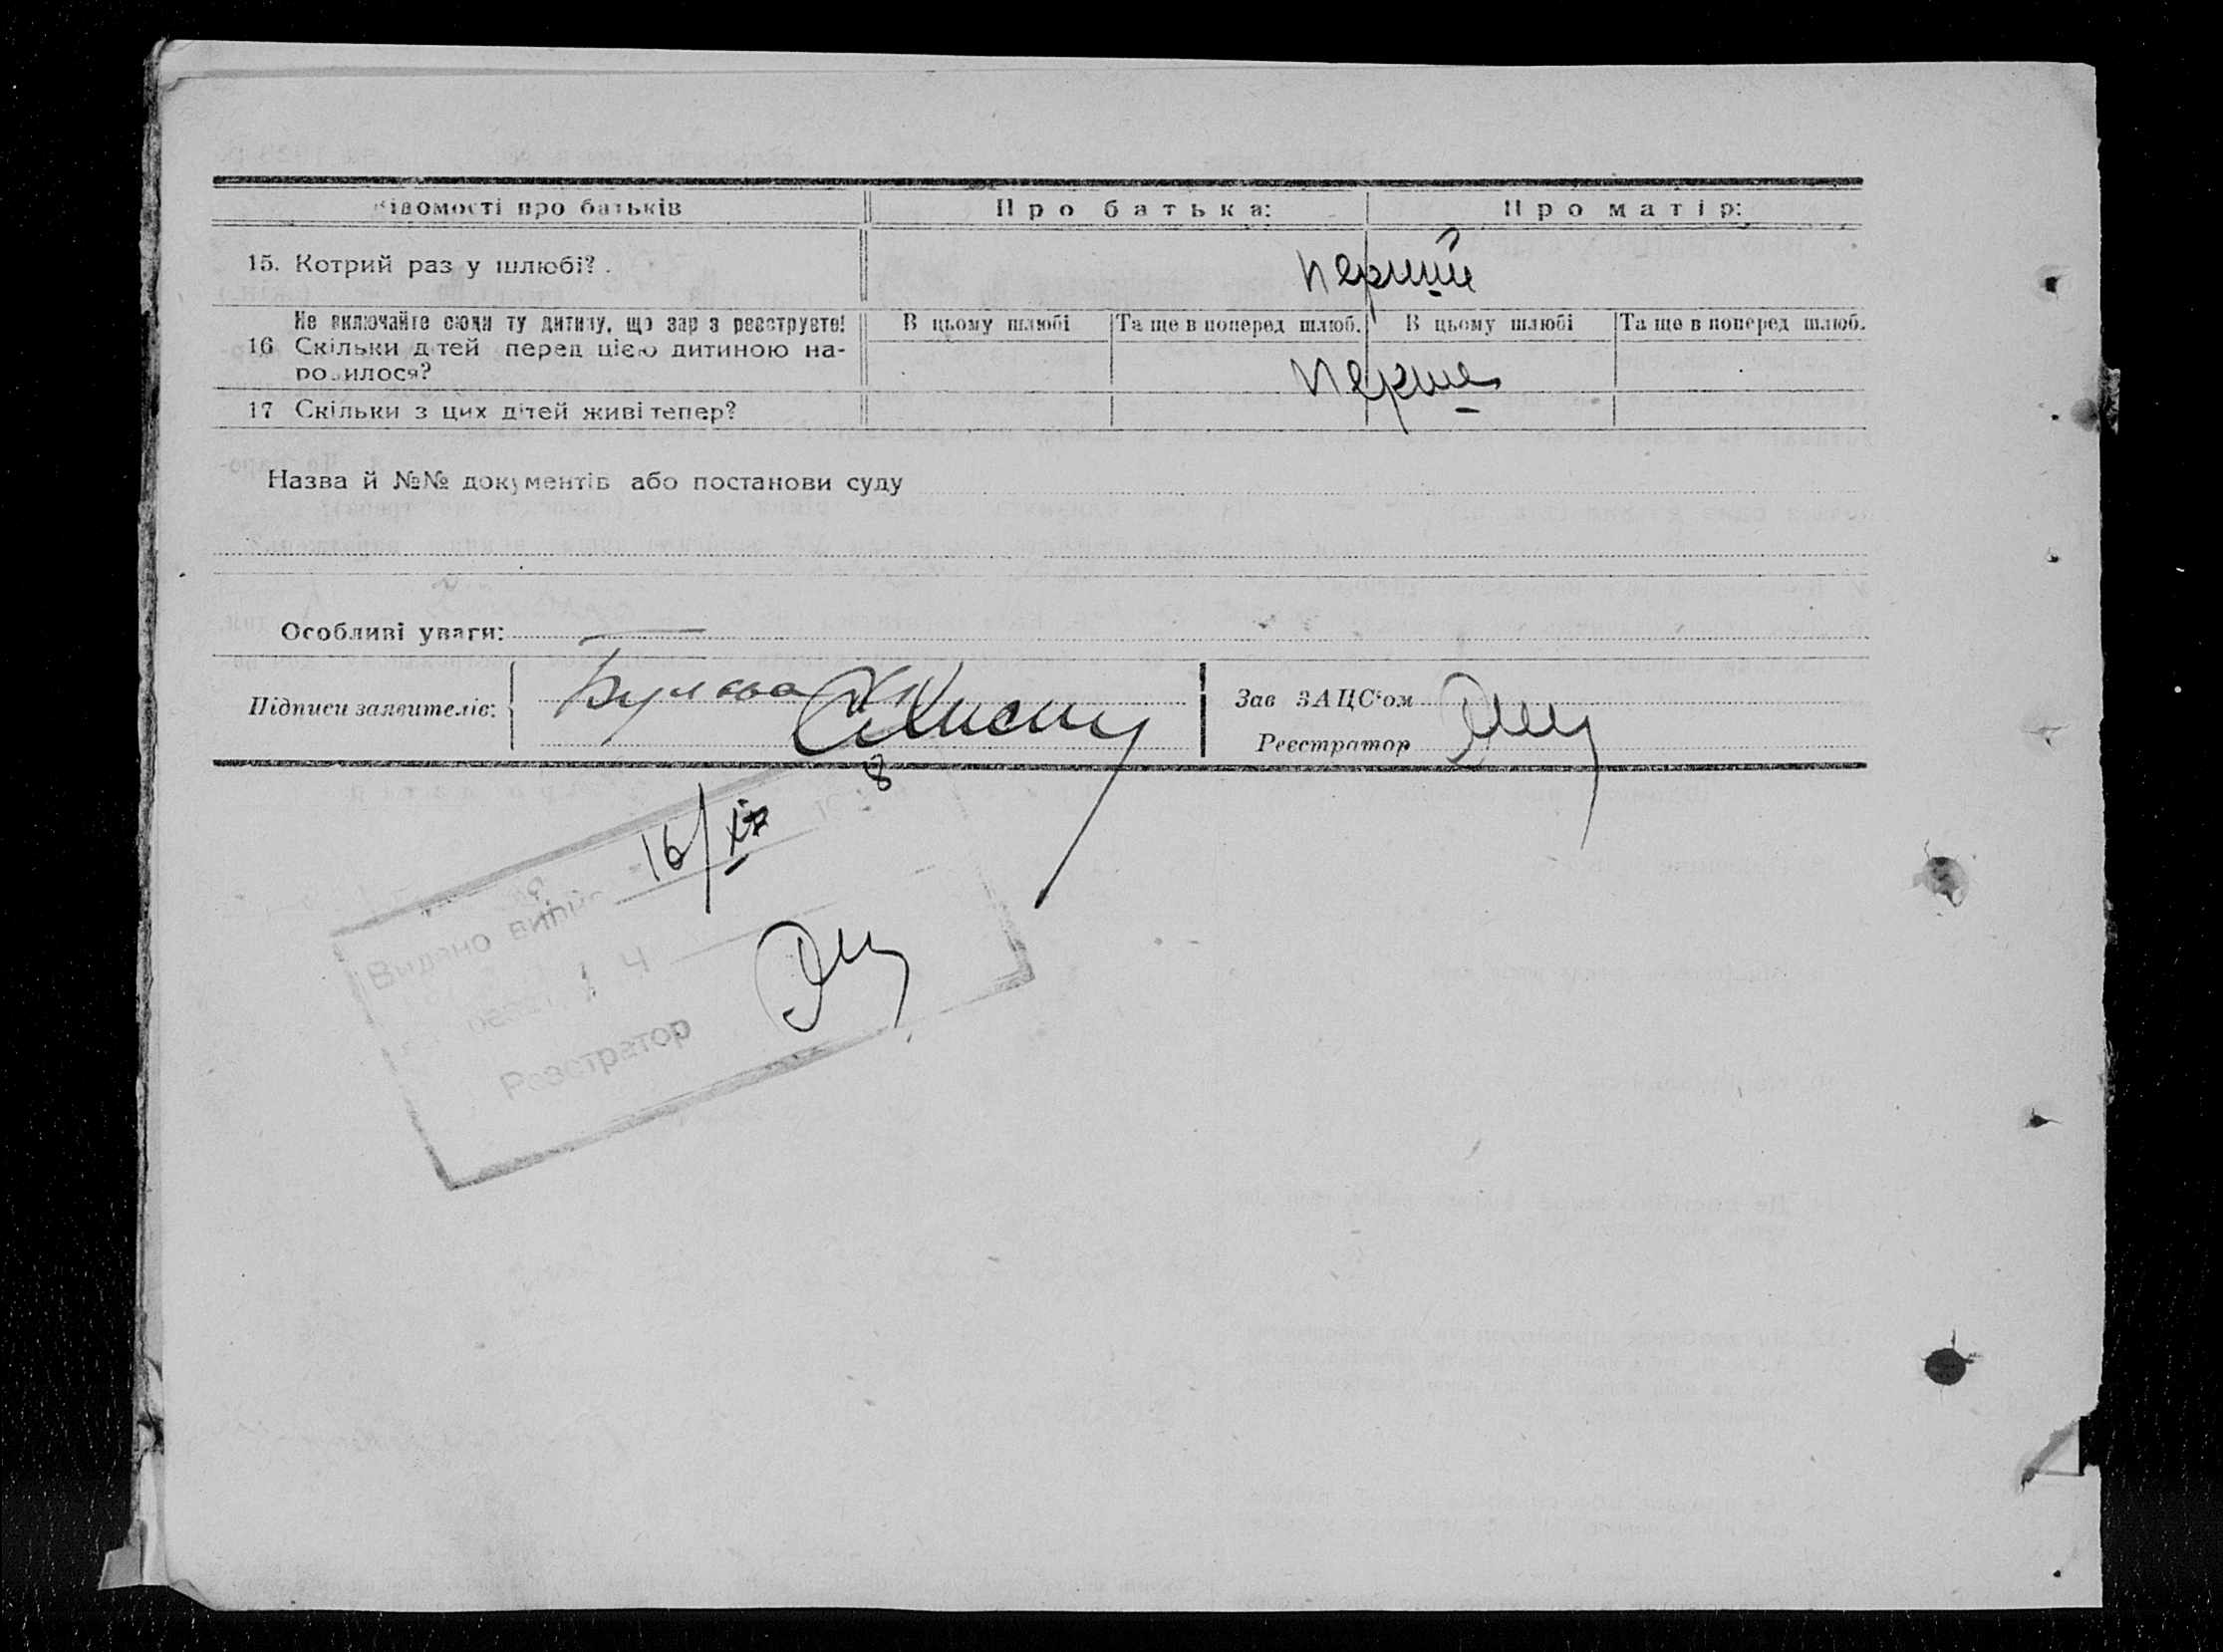 Відомості про батьків Про батька: Про матір:
15. Котрий раз у шлюбі? перший
Не включайте сюди ту дитину, що зараз реєструєте! В цьому шлюбі Та ще в поперед шлюб. В цьому шлюбі Та ще в поперед шлюб.
16 Скільки дітей перед цією дитиною на-
родилося? перше
17 Скільки з цих дітей живі тепер?
Назва й №№ документів або постанови суду
Особливі уваги: —
Підписи заявителів:
Зав ЗАЦС'ом
Реєстратор
16/
8
Видано випис
Реєстратор